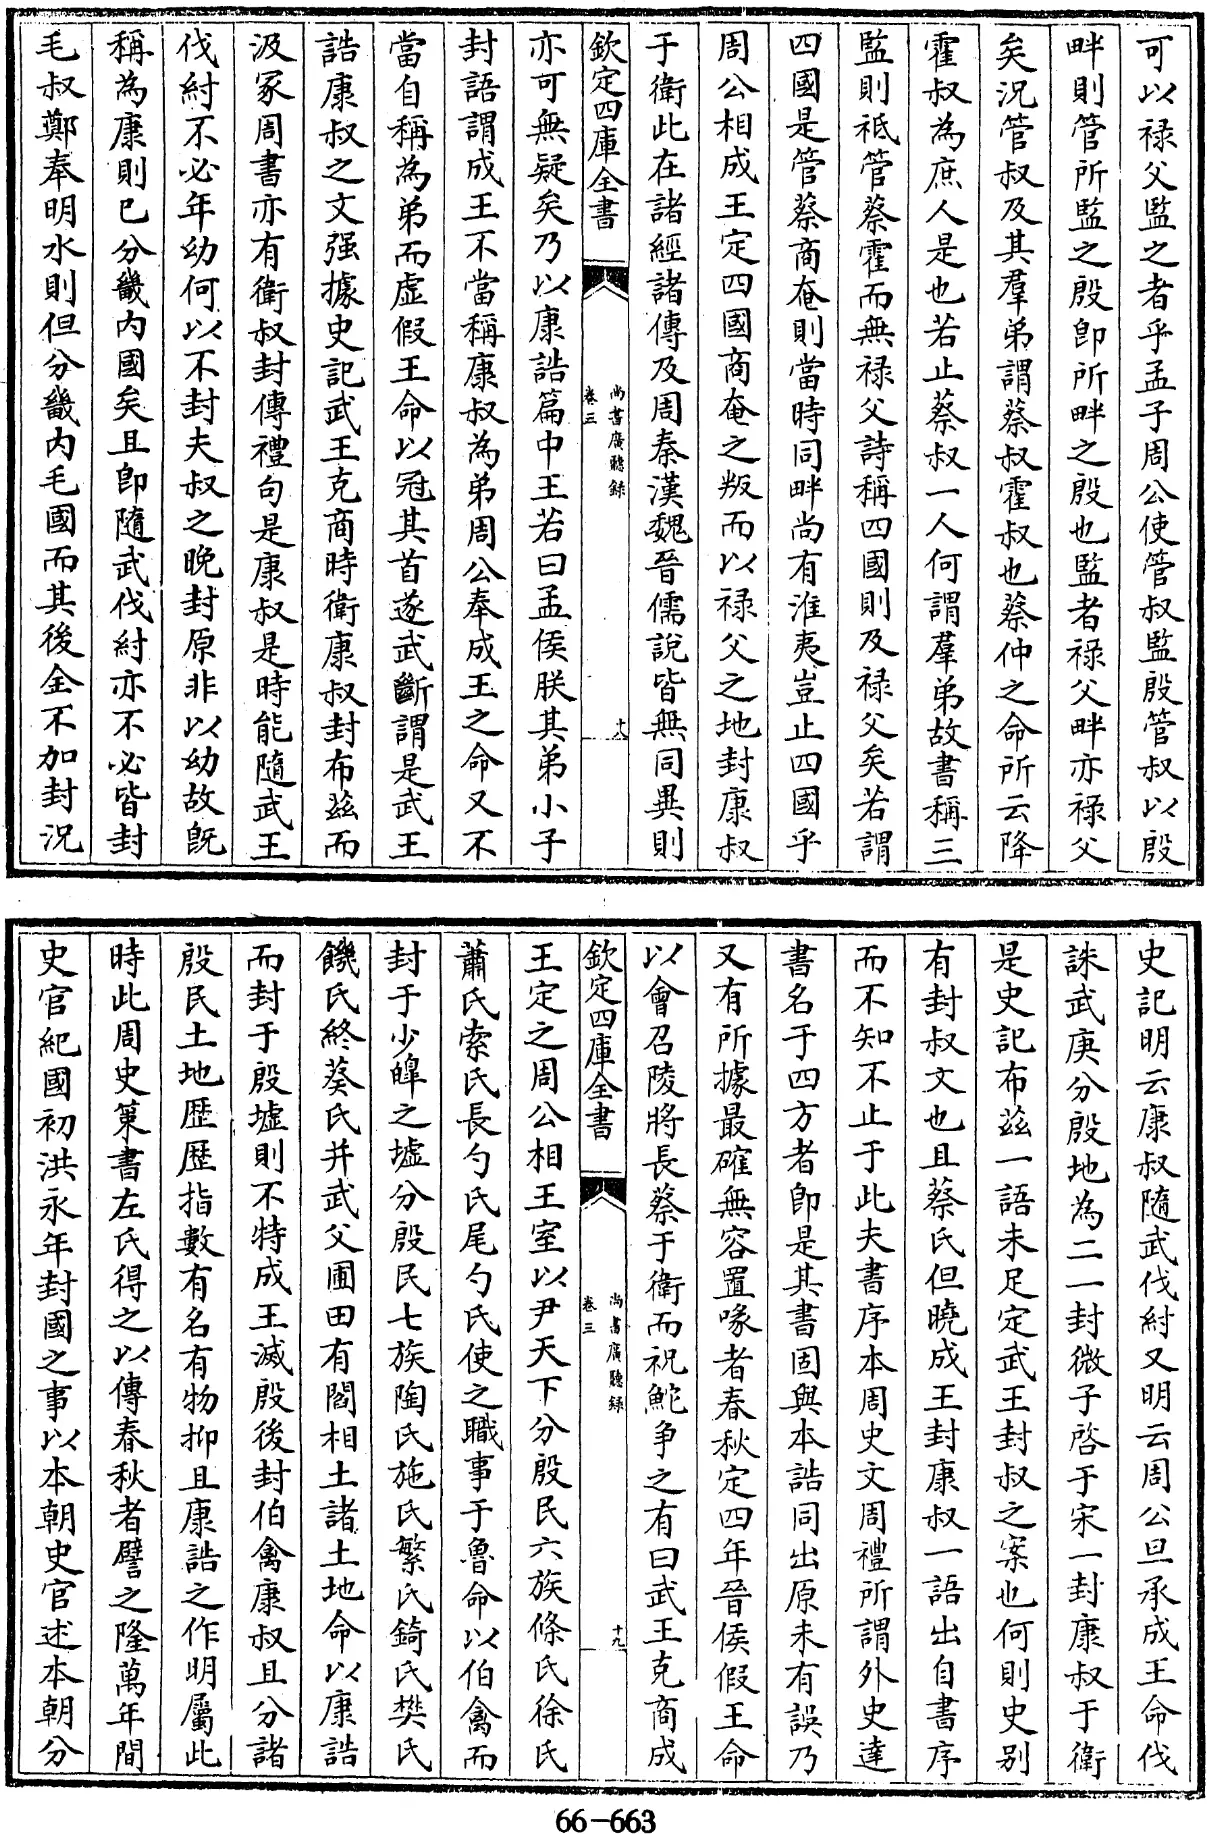 可以禄父監之者乎孟子周公使管叔監殷管叔以殷
畔則管所監之殷即所畔之殷也監者禄父畔亦禄父
矣況管叔及其羣弟謂蔡叔霍叔也蔡仲之命所云降
霍叔為庶人是也若止蔡叔一人何謂羣弟故書稱三
監則祗管蔡霍而無禄父詩稱四國則及禄父矣若謂
四國是管蔡商奄則當時同畔尚有淮夷豈止四國乎
周公相成王定四國商奄之叛而以禄父之地封康叔
于衛此在諸經諸傳及周秦漢魏晉儒說皆無同異則
欽定四庫全書
尚書廣聽録
卷三
十八
亦可無疑矣乃以康誥篇中王若曰孟侯朕其弟小子
封語謂成王不當稱康叔為弟周公奉成王之命又不
當自稱為弟而虛假王命以冠其首遂武斷謂是武王
誥康叔之文强據史記武王克商時衛康叔封布茲而
汲冢周書亦有衛叔封傳禮句是康叔是時能隨武王
伐紂不必年幼何以不封夫叔之晚封原非以幼故旣
稱為康則已分畿内國矣且即隨武伐紂亦不必皆封
毛叔鄭奉明水則但分畿内毛國而其後全不加封況
史記明云康叔隨武伐紂又明云周公旦承成王命伐
誅武庚分殷地為二一封微子啓于宋一封康叔于衛
是史記布茲一語未足定武王封叔之案也何則史别
有封叔文也且蔡氏但曉成王封康叔一語出自書序
而不知不止于此夫書序本周史文周禮所謂外史達
書名于四方者即是其書固與本誥同出原未有誤乃
又有所據最確無容置喙者春秋定四年晉侯假王命
以會召陵將長蔡于衛而祝鮀爭之有曰武王克商成
欽定四庫全書
尚書廣聽録
卷三
十九
王定之周公相王室以尹天下分殷民六族條氏徐氏
蕭氏索氏長勺氏尾勺氏使之職事于魯命以伯禽而
封于少皥之墟分殷民七族陶氏施氏繁氏錡氏樊氏
饑氏終葵氏幷武父圃田有閻相土諸土地命以康誥
而封于殷墟則不特成王滅殷後封伯禽康叔且分諸
殷民土地歷歷指數有名有物抑且康誥之作明屬此
時此周史策書左氏得之以傳春秋者譬之隆萬年間
史官紀國初洪永年封國之事以本朝史官述本朝分
66-663